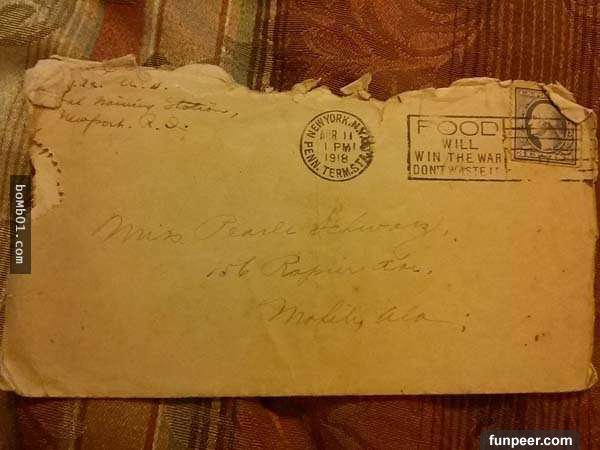 Naval Training Station,
Newport. R. I.
NEW YORK, N.Y.
APR 11
1 PM
1918
PENN. TERM. STA.
FOOD
WILL
WIN THE WAR
DON'T WASTE IT
Miss Pearle Schwarz,
156 Rapier Ave.
Mobile, Ala.
boMb01.com
funpeer.com